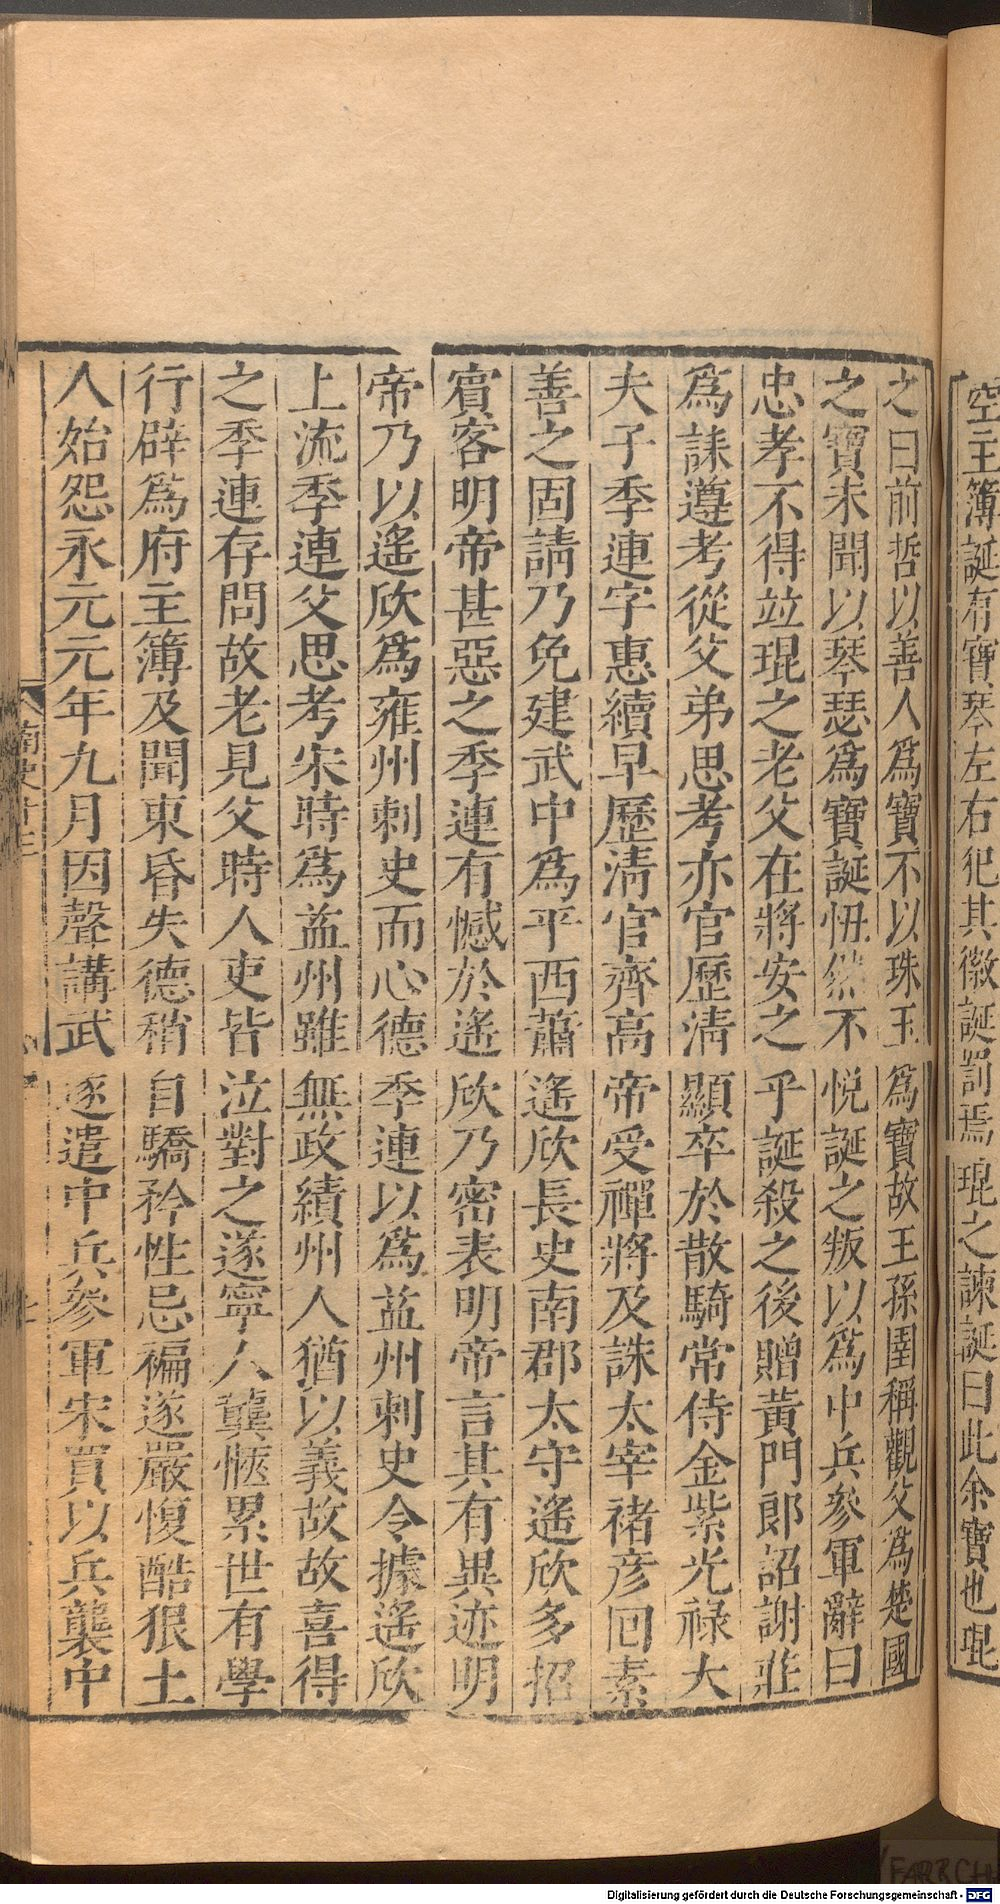 空主簿誕有寶琴左右犯其徽誕罰焉琨之諫誕曰此余寶也琨
之曰前哲以善人爲寶不以珠玉爲寶故王孫圉稱觀父爲楚國
之寶未聞以琴瑟爲寶誕忸然不悅誕之叛以爲中兵參軍辭曰
忠孝不得竝琨之老父在將安之乎誕殺之後贈黃門郎詔謝莊
爲誄遵考從父弟思考亦官歷淸顯卒於散騎常侍金紫光祿大
夫子季連字惠續早歷淸官齊高帝受禪將及誅太宰褚彥回素
善之固請乃免建武中爲平西蕭遙欣長史南郡太守遙欣多招
賓客明帝甚惡之季連有憾於遙欣乃密表明帝言其有異迹明
帝乃以遙欣爲雍州刺史而心德季連以爲益州刺史令據遙欣
上流季連父思考宋時爲益州雖無政績州人猶以義故故喜得
之季連存問故老見父時人吏皆泣對之遂寧人龔愜累世有學
行辟爲府主簿及聞東昏失德稍自驕矜性忌褊遂嚴愎酷狠土
人始怨永元元年九月因聲講武遂遣中兵參軍宋買以兵襲中
南史
Digitalisierung gefördert durch die Deutsche Forschungsgemeinschaft - DFG